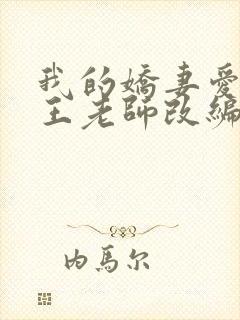 我的嬌妻愛
王老師改編
内馬尔